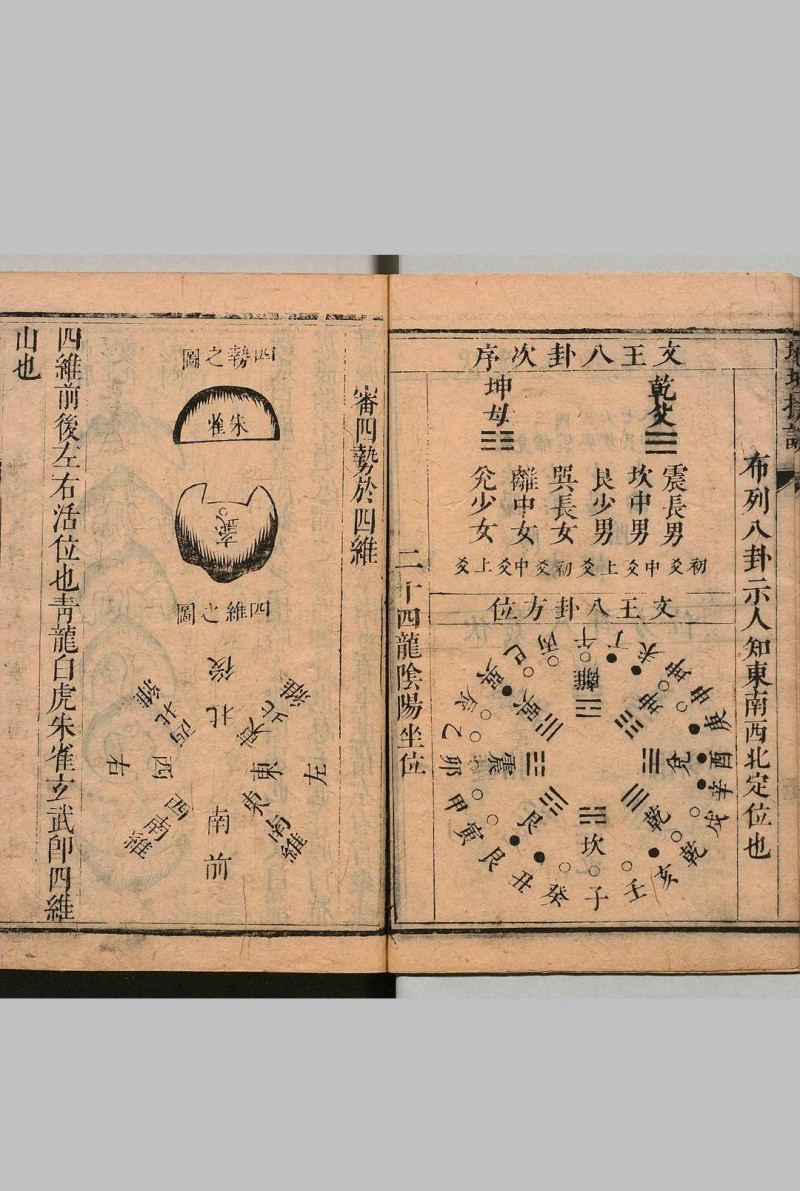 布列八卦示人知東南西北定位也
文王八卦次序
乾父
坤母
震長男
坎中男
艮少男
巽長女
離中女
兊少女
初爻中爻上爻初爻中爻上爻
文王八卦方位
午
丁
未
坤
申
庚
酉
辛
戌
乾
亥
壬
子
癸
丑
艮
寅
甲
卯
乙
辰
巽
巳
丙
離
坤
兌
乾
坎
艮
震
巽
二十四龍陰陽坐位
審四勢於四維
四勢之圖
朱雀
武
四維之圖
後
北
東北維
左
東
東南維
南
前
西南維
西
右
西北維
四維前後左右活位也青龍白虎朱雀玄武卽四維
山也